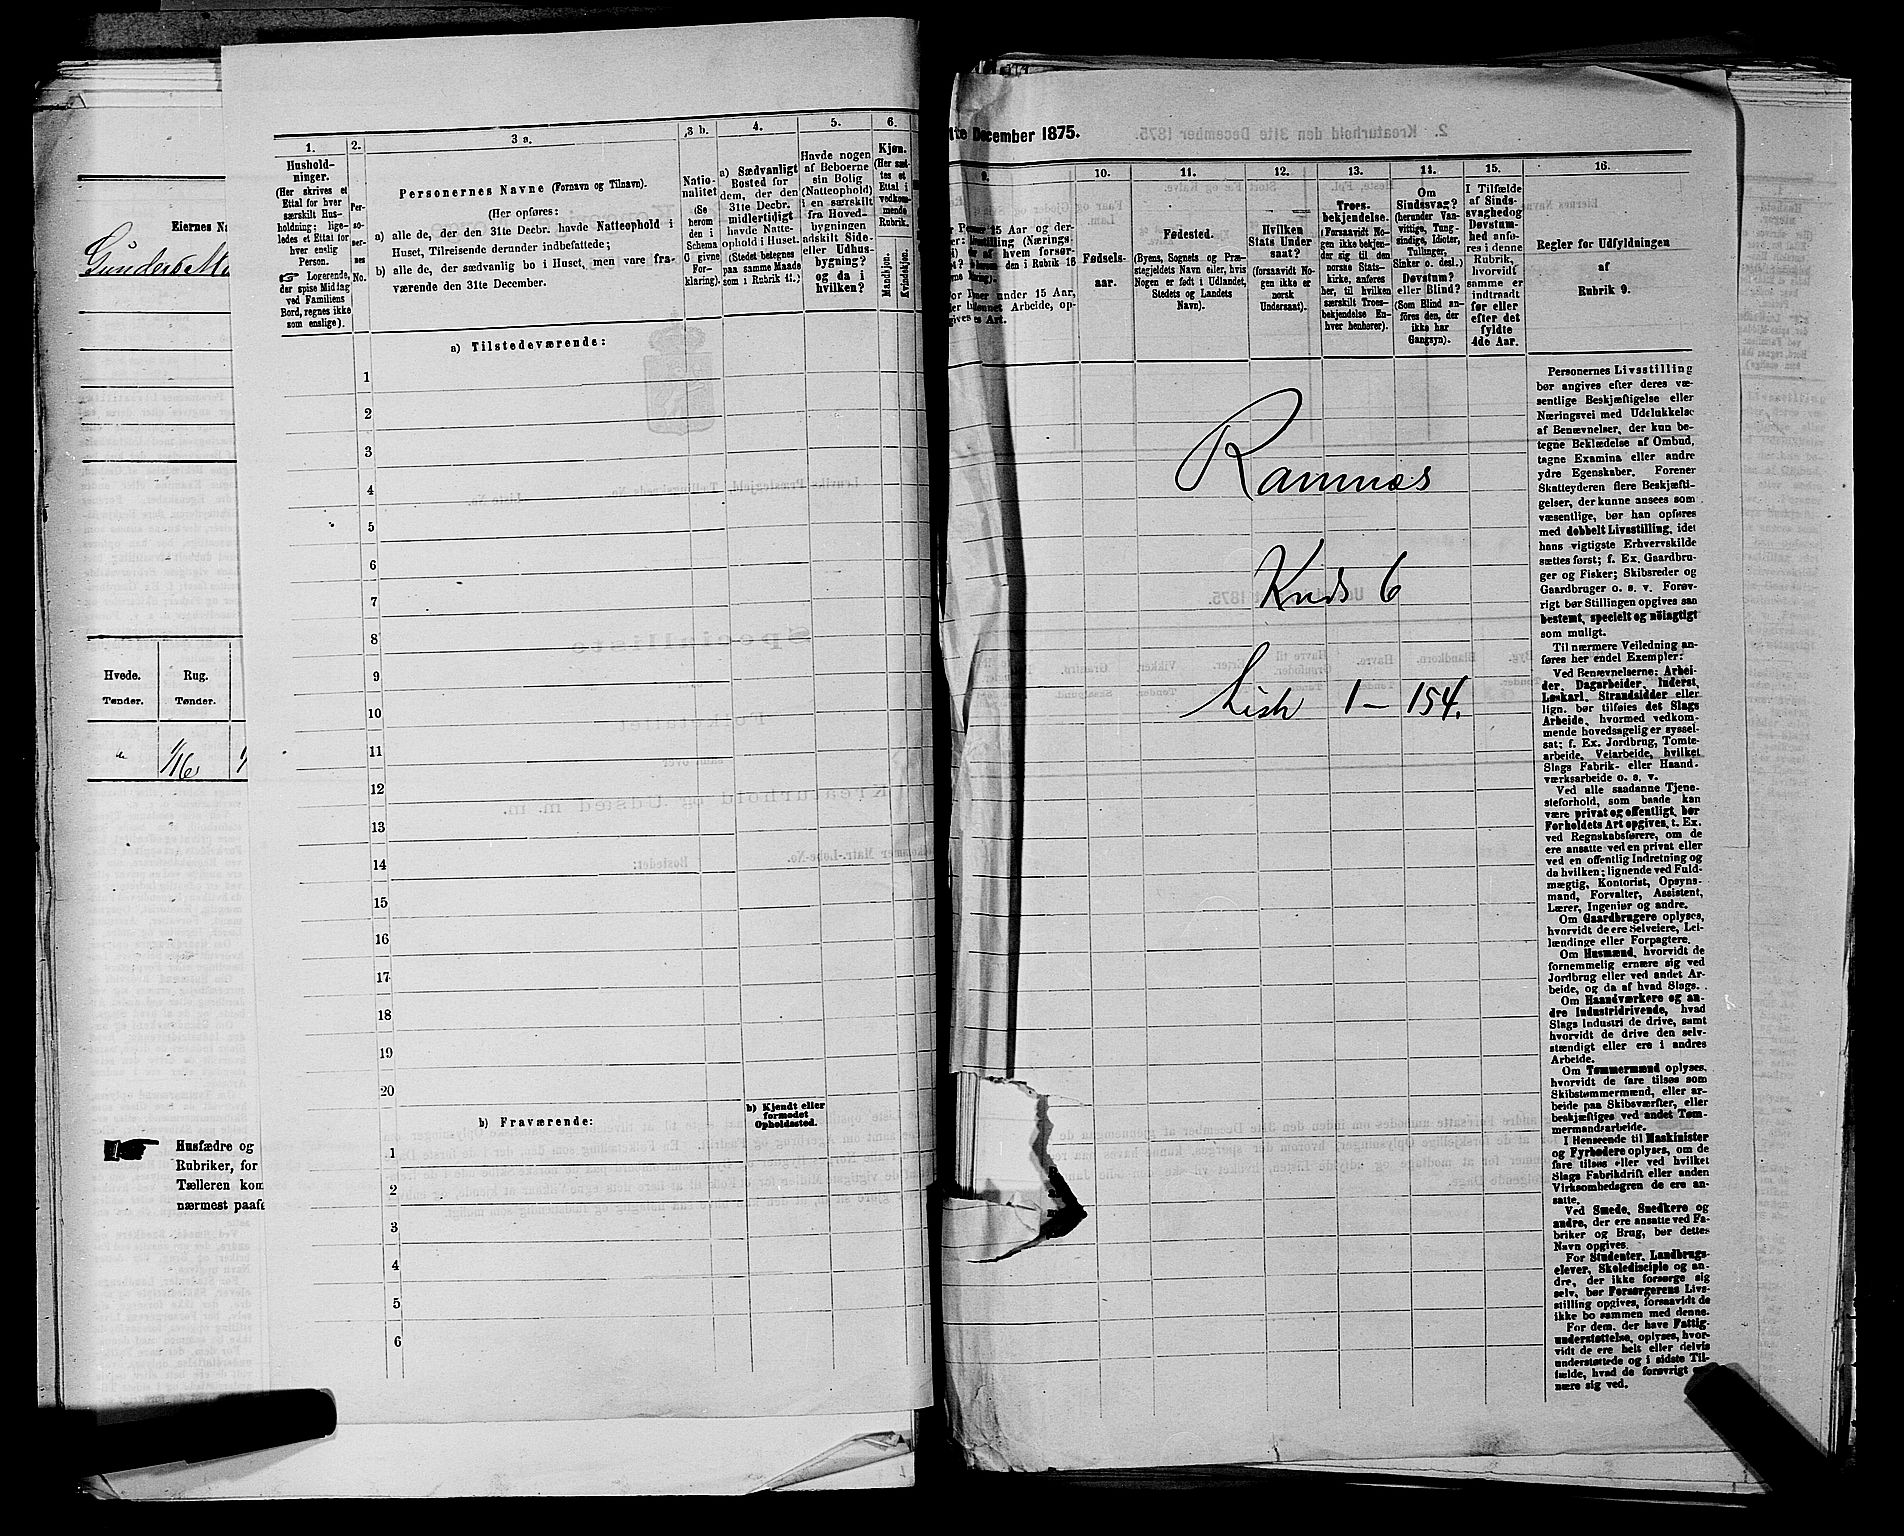 Eiernes Na
Hvede.
Tønder.
Rug.
Tønder.
1/16
Husfædre og
Rubriker, for
Tælleren kom
nærmest paafø
1.
Hushold-
ninger.
(Her skrives et
Ettal for hver
særskilt Hus-
holdning; lige-
ledes et Ettal for
hver enslig
Person.
Logerende,
der spise Middag
ved Familiens
Bord, regnes ikke
som enslige).
2.
Per-
so-
ner-
nes
No.
3 a.
Personernes Navne (Fornavn og Tilnavn).
(Her opføres:
a) alle de, der den 31te Decbr. havde Natteophold i
Huset, Tilreisende derunder indbefattede;
b) alle de, der sædvanlig bo i Huset, men vare fra-
værende den 31te December.
3 b.
Natio-
nalitet
(Se
herom
den i
Schema
C givne
For-
klaring).
4.
a) Sædvanligt
Bosted for
dem, der den
31te Decbr.
midlertidigt
havde Natte-
ophold i Huset.
(Stedet betegnes
paa samme Maade
som i Rubrik 11.)
5.
Havde nogen
af Beboerne
sin Bolig
(Natteophold)
i en særskilt
fra Hoved-
bygningen
adskilt Side-
eller Udhus-
bygning?
og da i
hvilken?
6.
Kjøn.
(Her sæt-
tes et
Ettal i
vedkom-
mende
Rubrik.
Mandkjøn.
Kvindekjøn.
a) Tilstedeværende:
1
2
3
4
5
6
7
8
9
10
11
12
13
14
15
16
17
18
19
20
b) Fraværende:
b) Kjendt eller
formodet
Opholdssted.
1
2
3
4
5
6
1te December 1875.
9.
15 Aar og der-
(Nærings-
hvem forsør-
den i Rubrik 16
under 15 Aar,
Arbeide, op-
gives
Art.
10.
Fødsels-
aar.
11.
Fødested.
(Byens, Sognets og Præ-
stegjeldets Navn eller, hvis
Nogen er født i Udlandet,
Stedets og Landets
Navn).
12.
Hvilken
Stats Under
saat?
(forsaavidt No-
gen ikke er
norsk
Undersaat).
13.
Troes-
bekjendelse.
(Forsaavidt No-
gen ikke bekjen-
der sig til den
norske Stats-
kirke, anføres
her, til hvilken
særskilt Troes-
bekjendelse En-
hver henhører).
14.
Om
Sindssvag?
(herunder Van-
vittige, Tung-
sindige, Idioter,
Tullinger,
Sinker o. desl.)
Døvstum?
eller Blind?
(Som Blind an-
føres den, der
ikke har
Gangsyn).
15.
I Tilfælde
af Sinds-
svaghed og
Døvstum-
hed anfø-
res i denne
Rubrik,
hvorvidt
samme er
indtraadt
før eller
efter det
fyldte
4de Aar.
16.
Regler for Udfyldningen
af
Rubrik 9.
Ramnes
Kreds 6
Liste 1 – 154.
Personernes Livsstilling
bør angives efter deres væ-
sentlige Beskjæftigelse eller
Næringsvei med Udelukkelse
af Benævnelser, der kun be-
tegne Beklædelse af Ombud,
tagne Examina eller andre
ydre Egenskaber. Forener
Skatteyderen flere Beskjæfti-
gelser, der kunne ansees som
væsentlige, bør han opføres
med dobbelt Livsstilling, idet
hans vigtigste Erhvervskilde
sættes først; f. Ex. Gaardbru-
ger og Fisker; Skibsreder og
Gaardbruger o. s. v. Forøv-
rigt bør Stillingen opgives saa
bestemt, specielt og nöiagtigt
som muligt.
Til nærmere Veiledning an-
føres her endel Exempler:
Ved Benævnelserne: Arbei-
der, Dagarbeider, Inderst,
Løskarl, Strandsidder eller
lign. bør tilføies det Slags
Arbeide, hvormed vedkom-
mende hovedsagelig er syssel-
sat; f. Ex. Jordbrug, Tomte-
arbeide, Veiarbeide, hvilket
Slags Fabrik- eller Haand-
værksarbeide o. s. v.
Ved alle saadanne Tjene-
steforhold, som baade kan
være privat og offentligt, bør
Forholdets Art opgives, t. Ex.
ved Regnskabsførere, om de
ere ansatte ved en privat eller
ved en offentlig Indretning og
da hvilken; lignende ved Fuld-
mægtig, Kontorist, Opsyns-
mand, Forvalter, Assistent,
Lærer, Ingeniør og andre.
Om Gaardbrugere oplyses,
hvorvidt de ere Selveiere, Lei-
lændinge eller Forpagtere.
Om Husmænd, hvorvidt de
fornemmelig ernære sig ved
Jordbrug eller ved andet Ar-
beide, og da af hvad Slags.
Om Haandværkere og an-
dre Industridrivende, hvad
Slags Industri de drive, samt
hvorvidt de drive den selv-
stændigt eller ere i andres
Arbeide.
Om Tømmermænd oplyses,
hvorvidt de fare tilsøs som
Skibstømmermænd, eller ar-
beide paa Skibsværfter, eller
beskjæftiges ved andet Tøm-
mermandsarbeide.
I Henseende til Maskinister
og Fyrbødere oplyses, om de
fare tilsøs eller ved hvilket
Slags Fabrikdrift eller anden
Virksomhedsgren de ere an-
satte.
Ved Smede, Snedkere og
andre, der ere ansatte ved Fa-
briker og Brug, bør dettes
Navn opgives.
For Studenter, Landbrugs-
elever, Skoledisciple og an-
dre, der ikke forsørge sig
selv, bør Forsørgerens Livs-
stilling opgives, forsaavidt de
ikke bo sammen med denne.
For dem, der have Fattig-
understøttelse, oplyses, hvor-
vidt de ere helt eller delvis
understøttede og i sidste Til-
fælde, hvad de forøvrigt er-
nære sig ved.